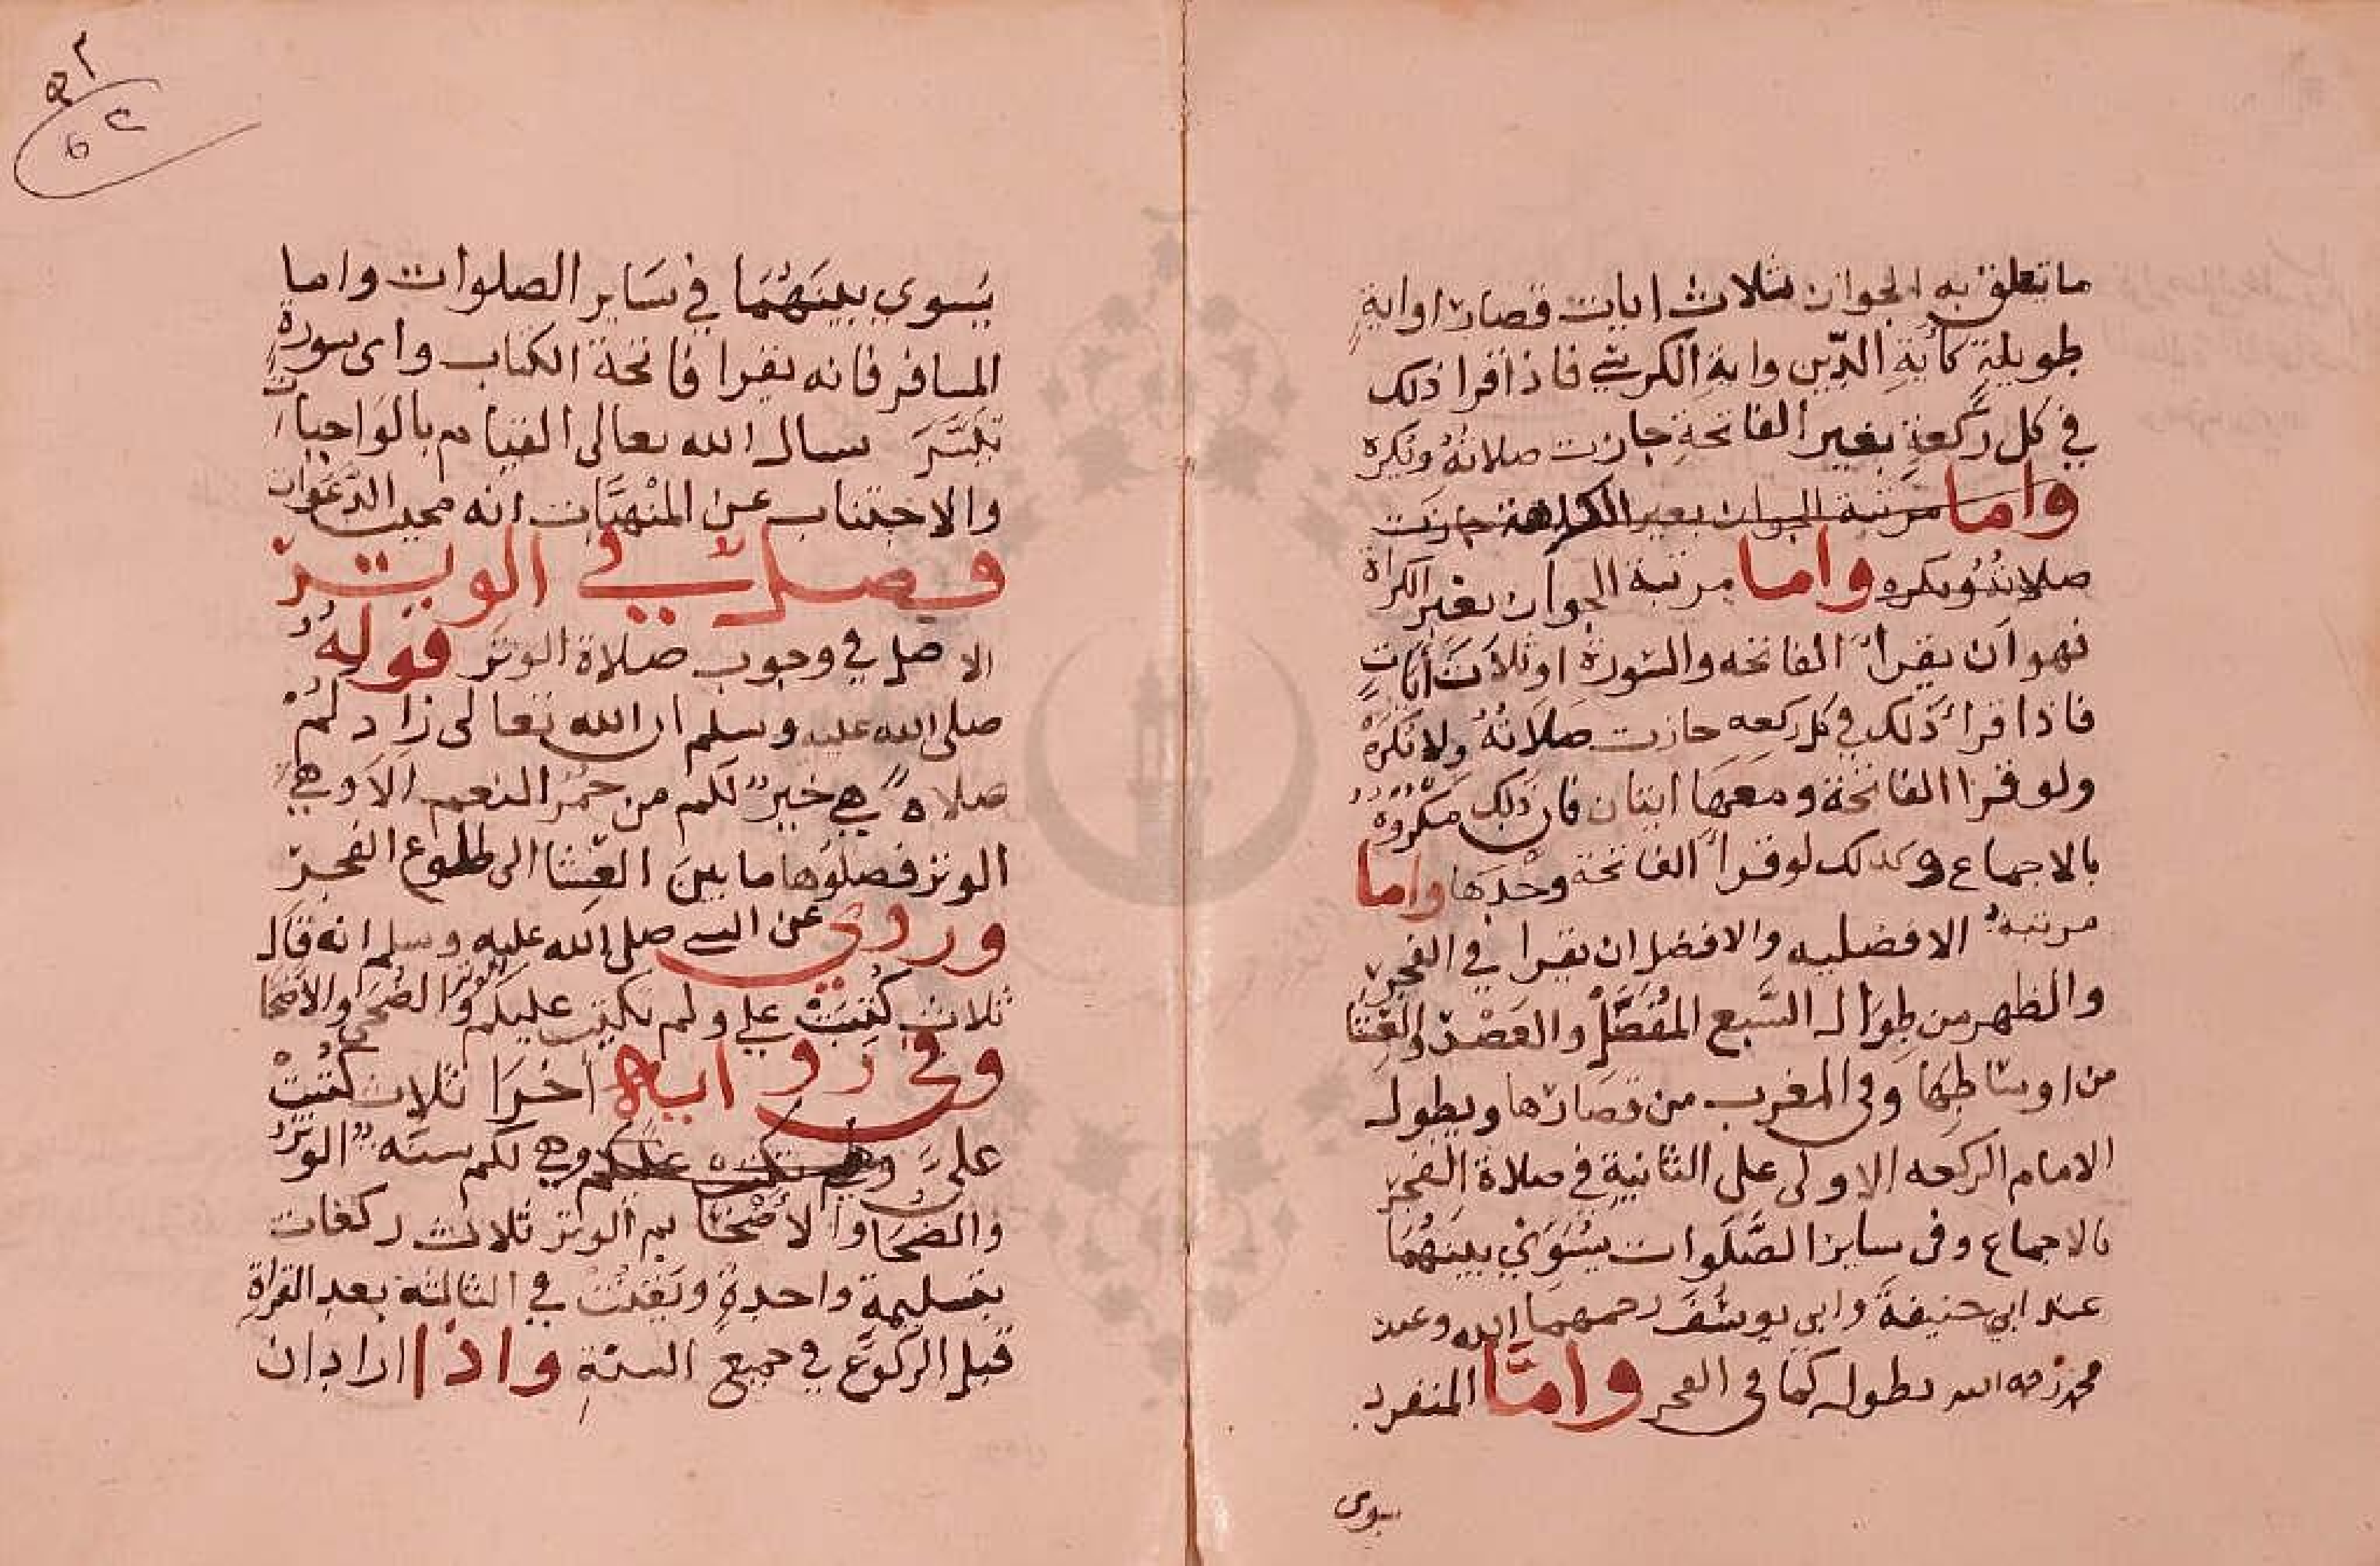 ما تعلق به الجواز ثلاث ايات قصار او ايةٍ
طويلةٍ كأيةِ الدّين واية الكرسي فاذا قرا ذلك
في كل ركعةٍ بغير الفاتحةِ جازت صلاتهُ وتكره
واما مرتبة الجواز بغير الكراهة جازت
صلاتهُ ويكره واما مرتبة الجواز بغير الكراة
فهو ان يقرأ الفاتحه والسُورة او ثلاث أيَاتٍ
فاذا قرأ ذلك في كل ركعه جازت صَلاتهُ ولا تكرهُ
ولو قرا الفاتحة ومعهَا ايتان فان ذلك مكروهُ
بالاجماع وكذلك لو قرأ الفاتحة وحْدَها واما
مرتبة الافضليه والافضل ان يقرا في الفجر
والظهر من طِوَال السَّبع المُفصَّل والعَصْر والعِشَا
من اوسَاطِهَا وفى المغرب من قصَارها ويطول
الامام الركعه الاولى على الثانيةِ في صلاة الفجر
بالاجماع وفى ساير الصَّلَوات يسُوَي بينهُمَا
عند ابي حنيفةَ وابي يوسُفَ رحمهما الله وعند
محمد رحمه الله يطوله كما فى الفجر وامَّا المنفرد
سوى
٢
يسَوي بينَهُمَا في سَاير الصلوات واما
المسافر فانه يقرا فاتحة الكتاب واى سورةٍ
تيَسَّرَ نسال الله تعالى القيام بالواجبات
والاجتناب عن المنْهيَّات انه مجيب الدَّعَوات
فصل في الوتر
الاصل في وجوب صلاة الوتر قولهُ
صلى الله عليه وسلم ان الله تعالى زاد لكمْ
صلاةً هي خيرٌ لكم من حمُر النعم ألا وهي
الوتر فصلوُها ما بينَ العِشا الى طلوع الفجر
وروي عن النبي صلى الله عليه وسلم انه قال
ثلاث كُتبَتْ علي ولم تكتب عليكم الوتر والضُحَى والاضحَا
وفي رواية أخرَا ثلاث كُتبَتْ
عليَّ ولم تكتب عليكم وهي لكم سنةٌ الوتر
والضحَا والأضْحَا ثم الوتر ثلاث ركعات
بتسليمةٍ واحدةٍ ويَقنتُ في الثالثة بعد القراةِ
قبل الركوع في جميع السنةِ واذا اراد ان